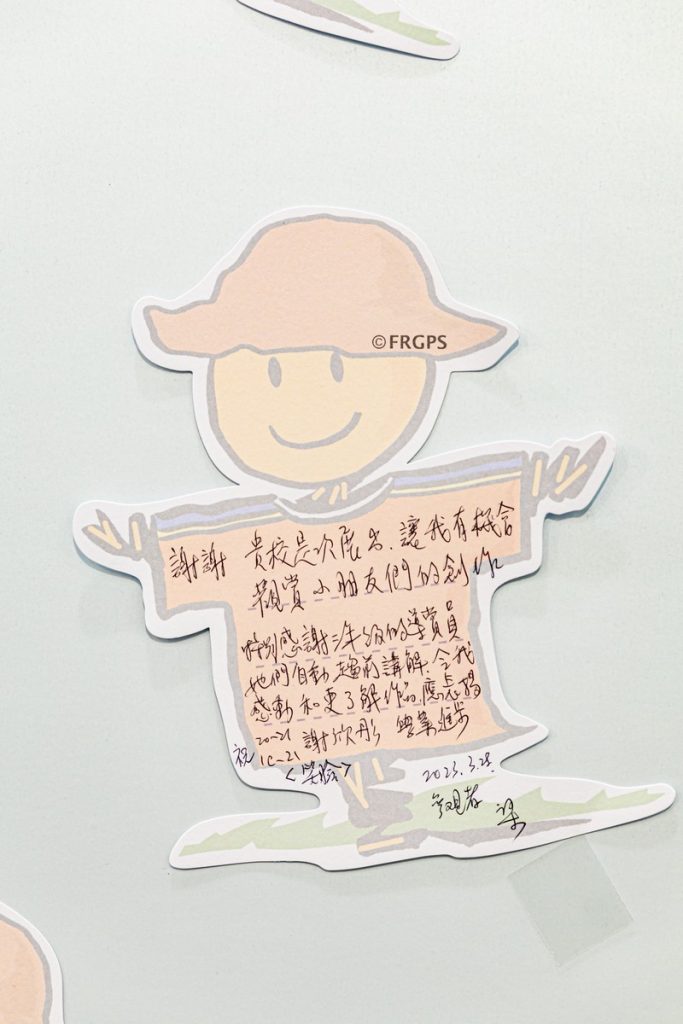 ©FRGPS
謝謝 貴校是次展出,讓我有機會
觀賞小朋友們的創作
特別感謝三年級的導賞員
他們自動趨前講解,令我
感動和更了解作品
謝欣彤 學業進步
祝
<笑臉>
2023.3.28.
參觀者 梁